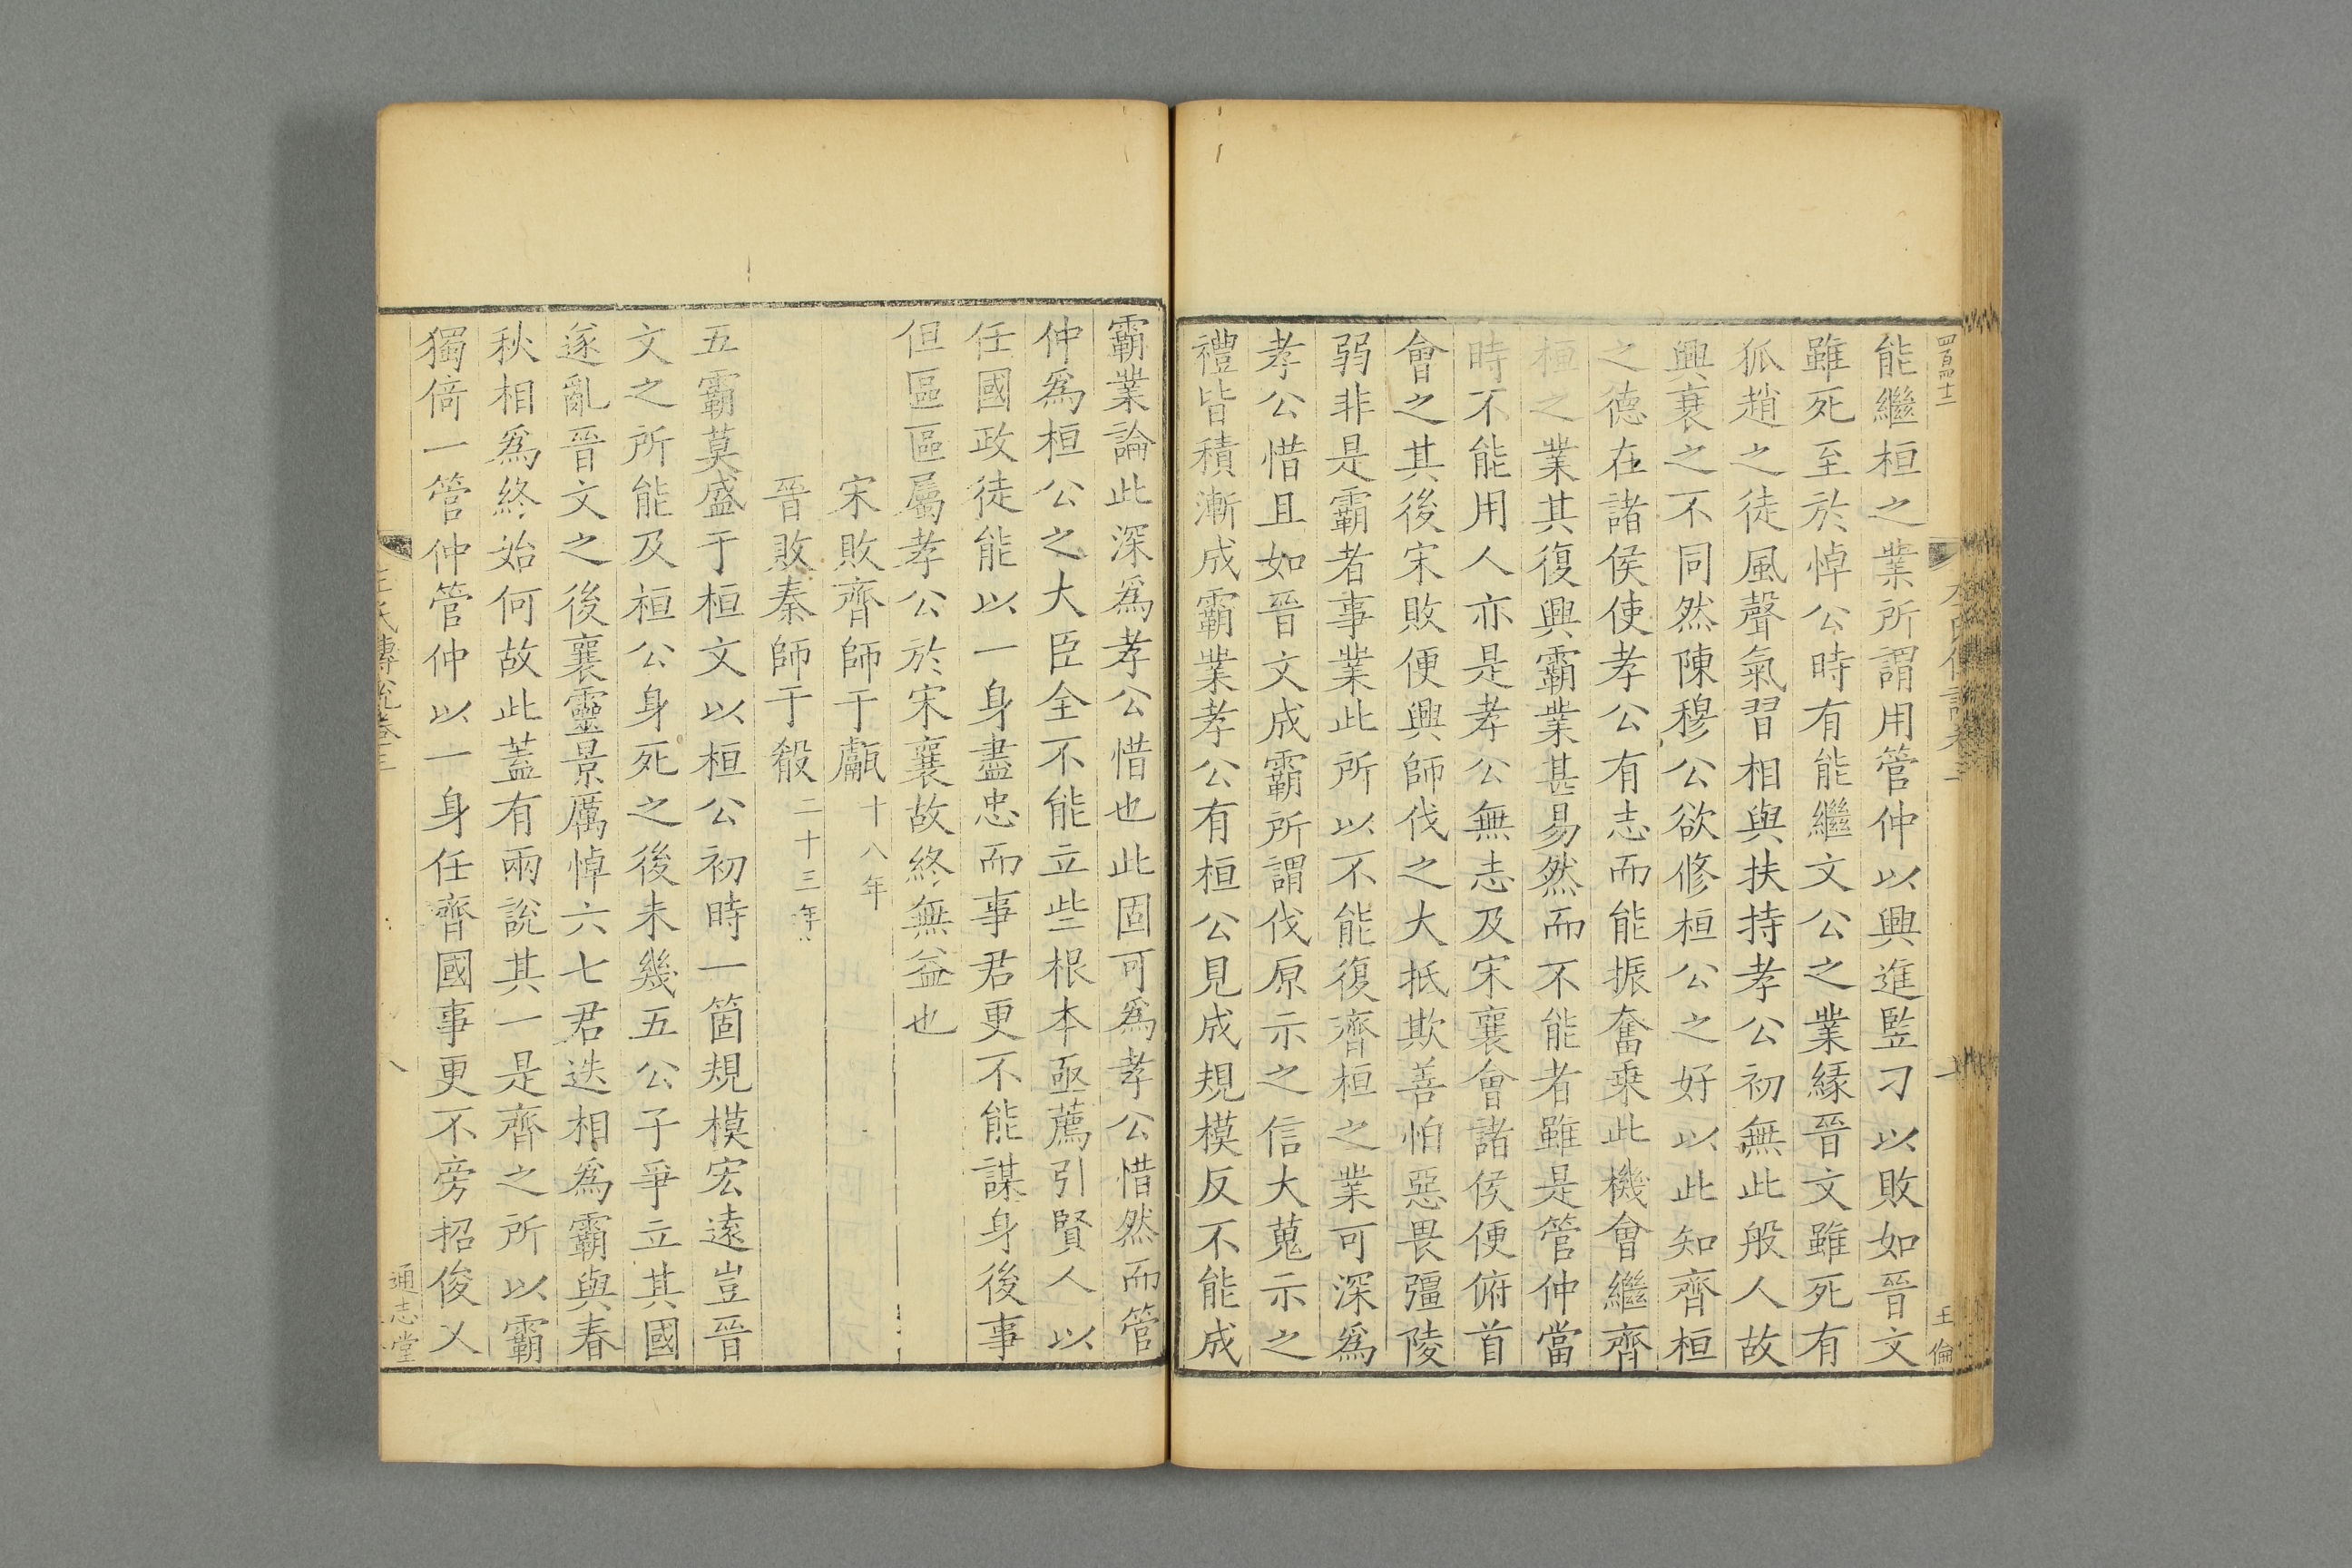 四百四十二
王倫
能繼桓之業所謂用管仲以興進監刁以敗如晉文
雖死至於悼公時有能繼文公之業縁晉文雖死有
狐趙之徒風聲氣習相與扶持孝公初無此般人故
興衰之不同然陳穆公欲修桓公之好以此知齊桓
之德在諸侯使孝公有志而能振奮乗此機會繼齊
桓之業其復興霸業甚易然而不能者雖是管仲當
時不能用人亦是孝公無志及宋襄會諸侯便俯首
會之其後宋敗便興師伐之大抵欺善怕惡畏彊陵
弱非是霸者事業此所以不能復齊桓之業可深爲
孝公惜且如晉文成霸所謂伐原示之信大蒐示之
禮皆積漸成霸業孝公有桓公見成規模反不能成
霸業論此深爲孝公惜也此固可爲孝公惜然而管
仲爲桓公之大臣全不能立些根本亟薦引賢人以
任國政徒能以一身盡忠而事君更不能謀身後事
但區區屬孝公於宋襄故終無益也
宋敗齊師于甗十八年
晉敗秦師于殽二十三年
五霸莫盛于桓文以桓公初時一箇規模宏遠豈晉
文之所能及桓公身死之後未幾五公子爭立其國
遂亂晉文之後襄靈景厲悼六七君迭相爲霸與春
秋相爲終始何故此蓋有兩說其一是齊之所以霸
獨倚一管仲管仲以一身任齊國事更不旁招俊乂
左氏傳說卷三
八
通志堂